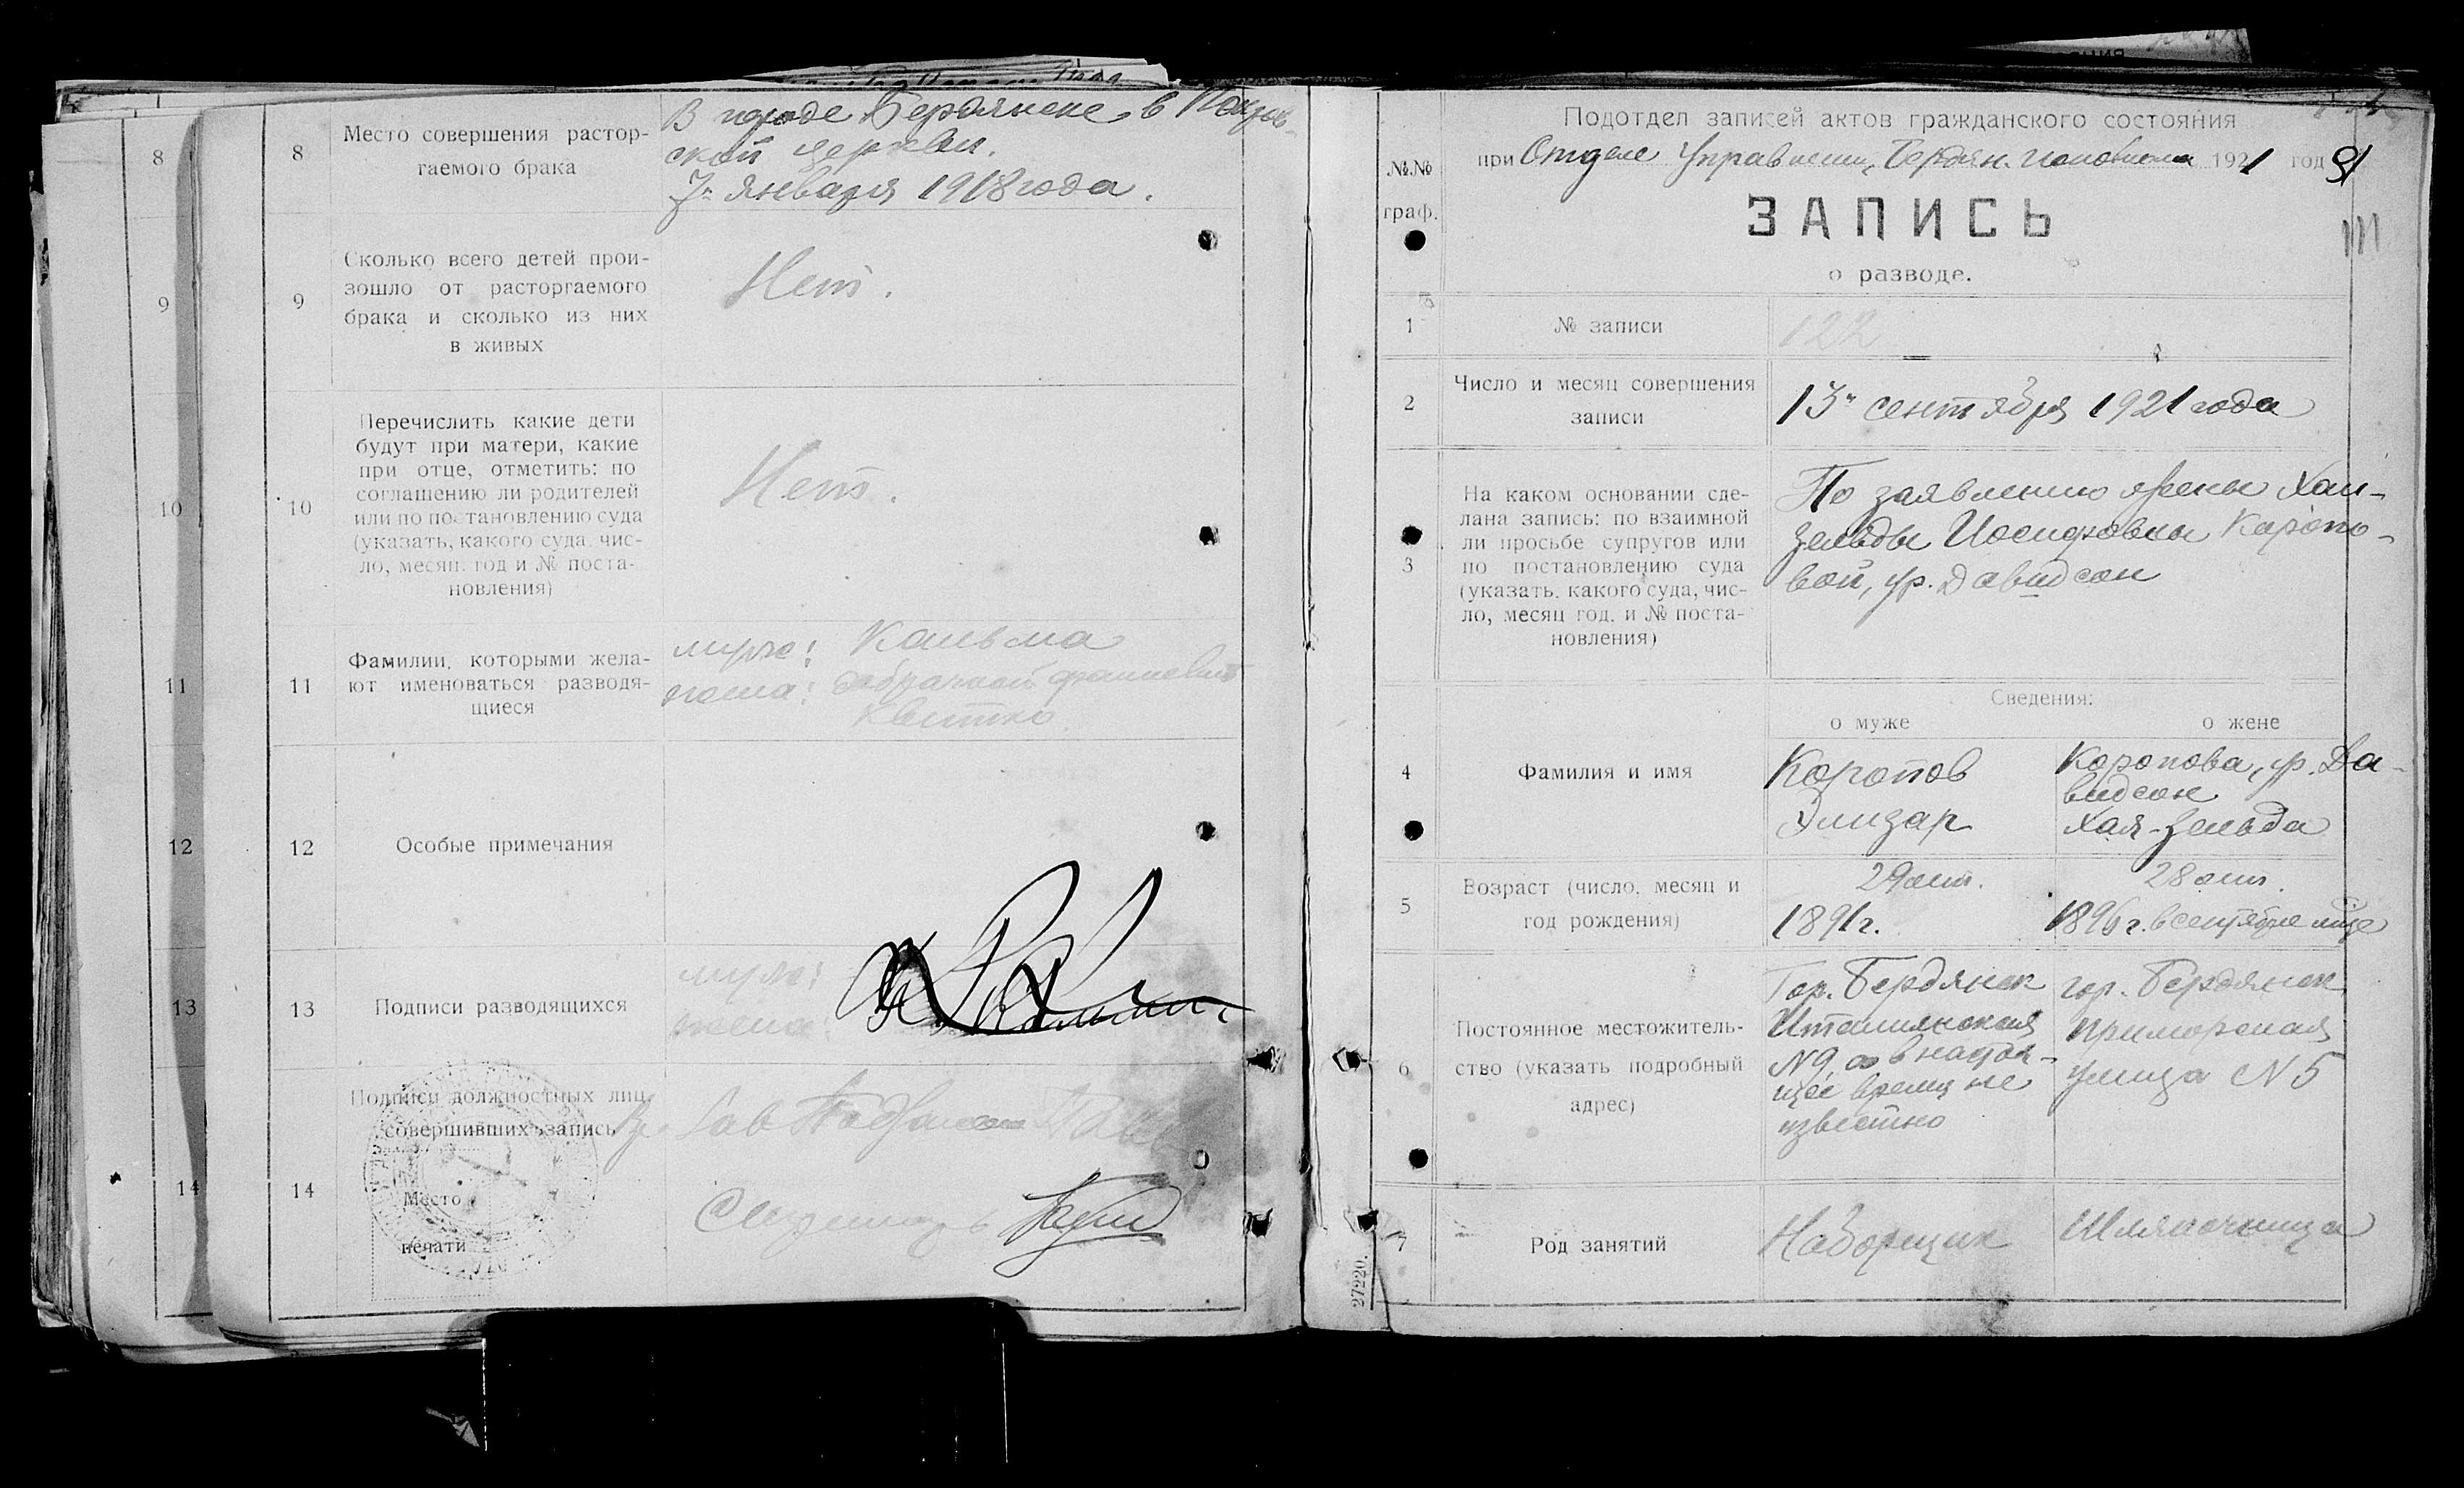 8
9
10
11
12
13
14
8
Место совершения растор-
гаемого брака
В городе Бердянске в Покров-
ской церкви.
7го января 1918 года.
9
Сколько всего детей прои-
зошло от расторгаемого
брака и сколько из них
в живых
Нет.
10
Перечислить какие дети
будут при матери, какие
при отце, отметить: по
соглашению ли родителей
или по постановлению суда
(указать, какого суда, чис-
ло, месяц, год и № поста-
новления)
Нет.
11
Фамилии, которыми жела-
ют именоваться разводя-
щиеся
муж: Кальма
жена: добрачной фамилией
Квитко
12
Особые примечания
13
Подписи разводящихся
муж:
жена:
14
Подписи должностных лиц,
совершивших запись
Место
печати
Зав
Секретарь
Подотдел записей актов гражданского состояния
при Отделе Управления, Бердян. 1921 год
91
111
№№
граф.
ЗАПИСЬ
о разводе.
1
№ записи
122
2
Число и месяц совершения
записи
13го сентября 1921 года
3
На каком основании сде-
лана запись: по взаимной
ли просьбе супругов или
по постановлению суда
(указать, какого суда, чис-
ло, месяц год, и № поста-
новления)
По заявлению жены Хаи-
Зельды Иосифовны Коропо-
вой, ур. Давидсон
Сведения:
о муже
о жене
4
Фамилия и имя
Коропов
Элизар
Коропова, ур. Да-
видсон
Хая-Зельда
5
Возраст (число, месяц и
год рождения)
29 лет.
1891 г.
28 лет.
1896 г. в сентябре м-це
6
Постоянное местожитель-
ство (указать подробный
адрес)
Гор. Бердянск
Итальянская
№9, а в настоя-
щее время не
известно
гор. Бердянск
Приморская
улица №5
7
Род занятий
Наборщик
Шляпочница
27220.